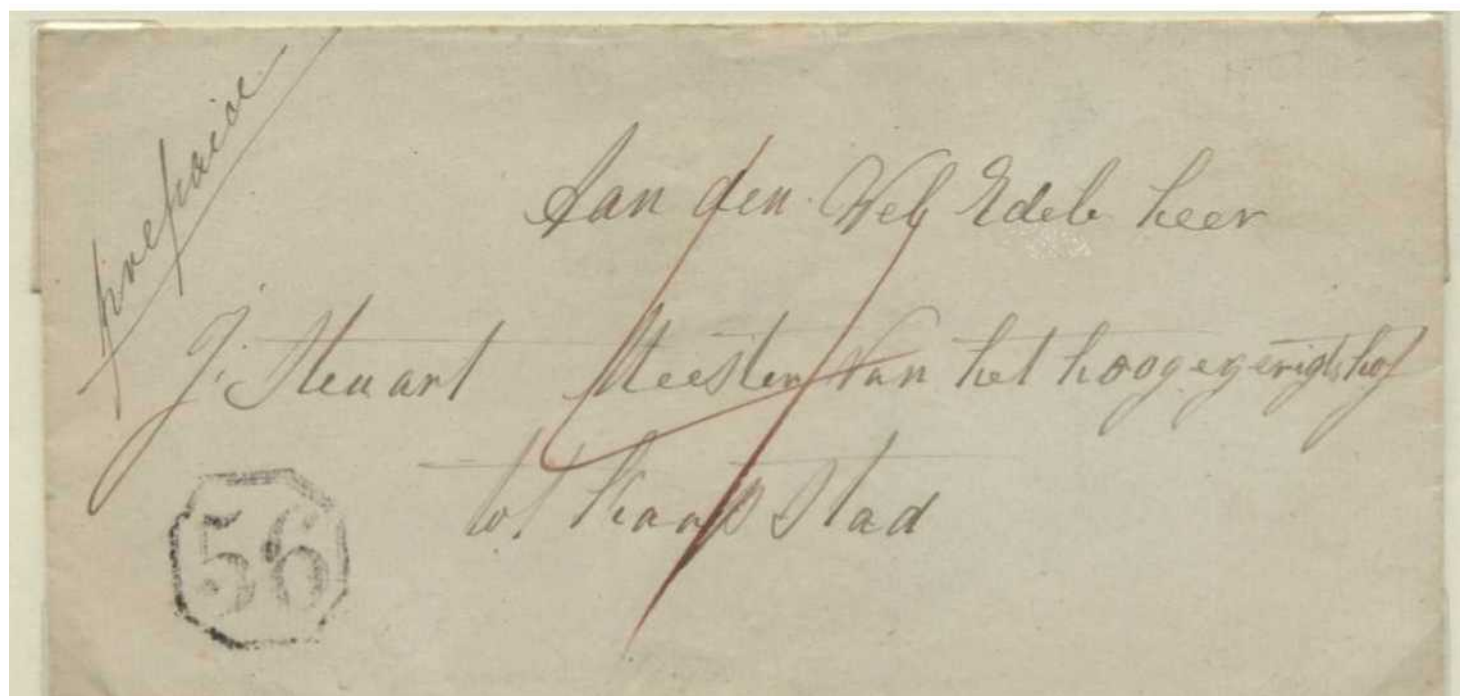 prepaid
Aan den Wel Edele heer
J. Steuart Meester Van het hoogegerigtshof
tot Kaapstad
56